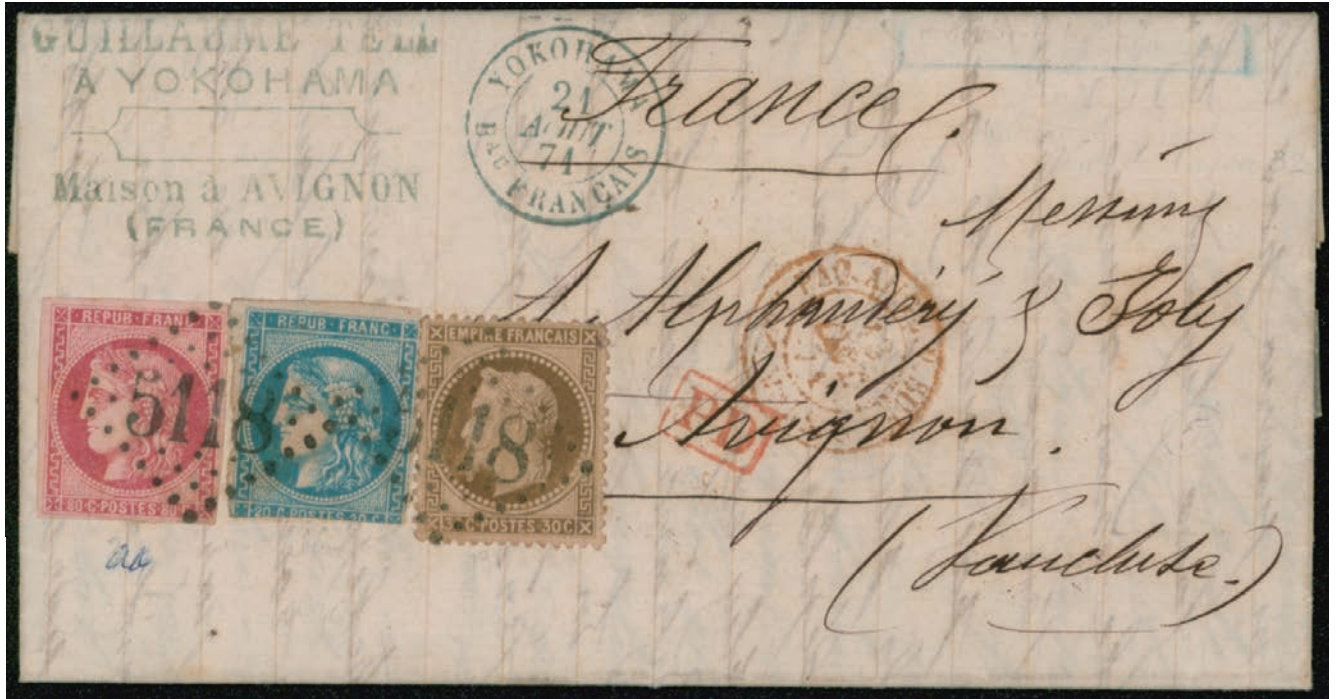 GUILLAUME TELL
A YOKOHAMA
Maison à AVIGNON
(FRANCE)
YOKOHAMA
21
AOUT
71
Bau FRANÇAIS
France.
Messieurs
A. Alphandéry & Joly
Avignon.
(Vaucluse.)
PAQ. AN
PD
REPUB·FRANC
80·C·POSTES·80
5118
REPUB·FRANC·
20·C·POSTES·20·C
EMPIRE FRANÇAIS
30·C·POSTES·30C
5118